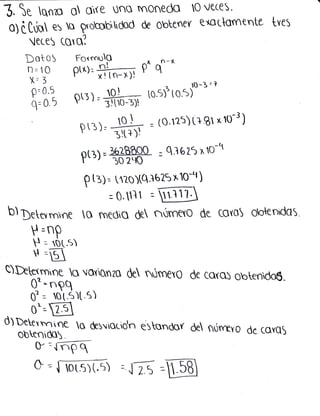 3. Se lanza al aire una moneda 10 veces.
a) ¿Cuál es la probabilidad de obtener exactamente tres
veces cara?
Datos Formula
n=10 p(x)= n! / x!(n-x)! p^x q^n-x
x=3
p=0.5 p(3)= 10! / 3!(10-3)! (0.5)^3 (0.5)^10-3=7
q=0.5
p(3)= 10! / 3!(7)! = (0.125)(7.81 x 10^-3)
p(3)= 3628800 / 30240 = 9.7625 x 10^-4
p(3)= (120)(9.7625 x 10^-4)
= 0.1171 = 11.717.
b) Determine la media del número de caras obtenidas.
μ = np
μ = 10(.5)
μ = 5
c) Determine la varianza del número de caras obtenidas.
σ² = npq
σ² = 10(.5)(.5)
σ² = 2.5
d) Determine la desviación estandar del número de caras
obtenidas.
σ = √npq
σ = √10(.5)(.5) = √2.5 = 1.58